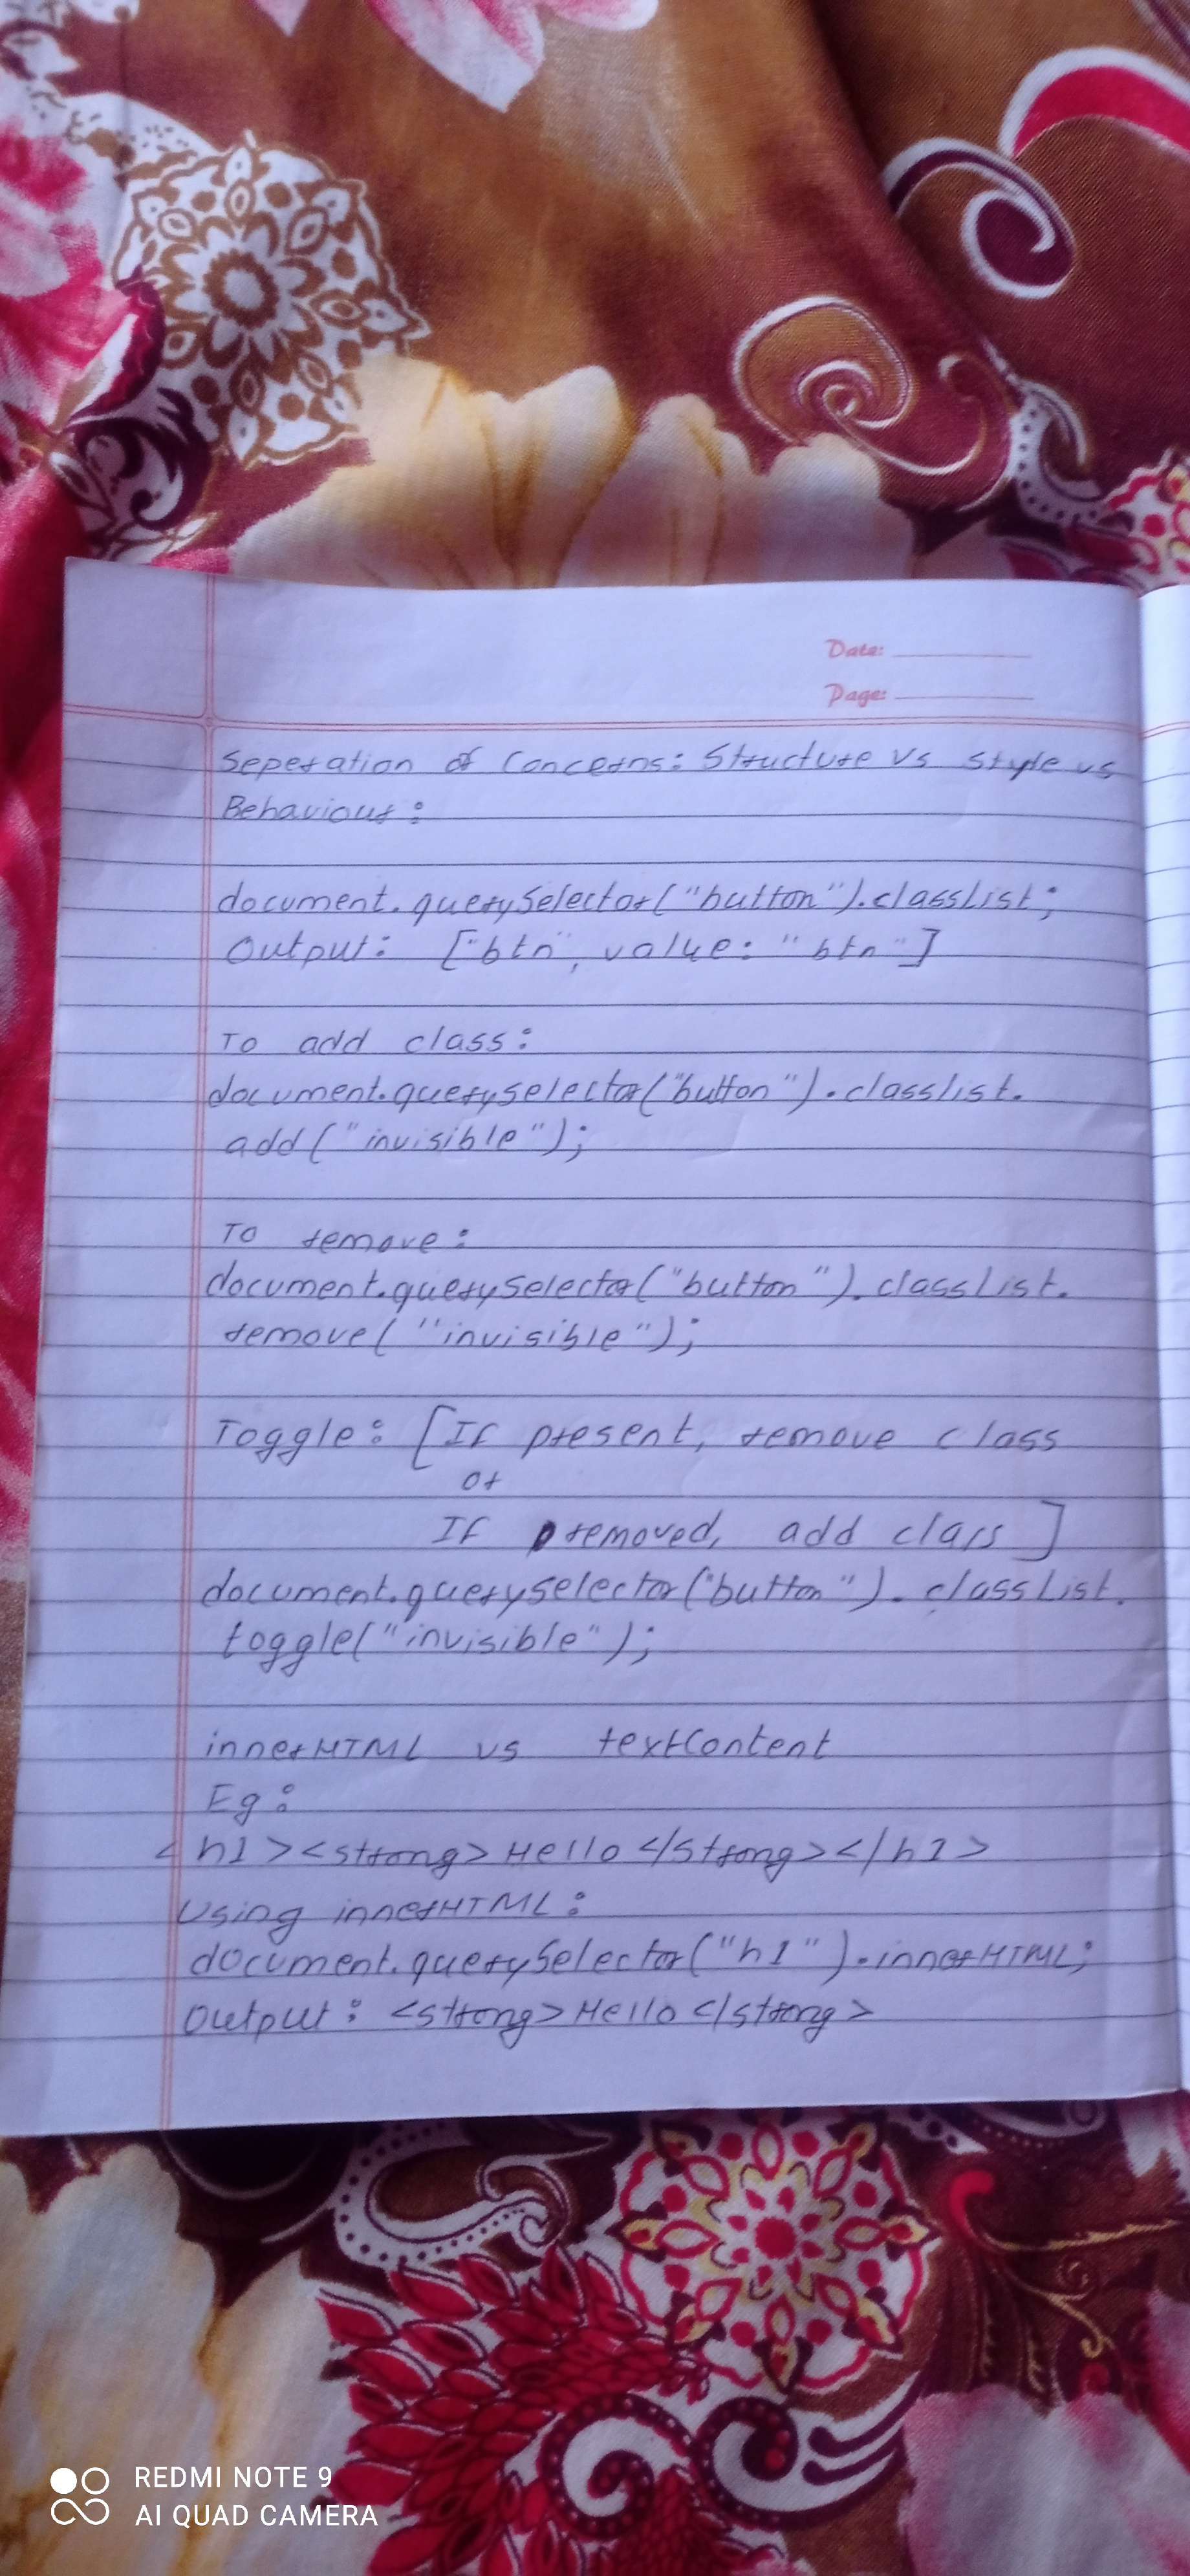 Date:
Page:
Seperation of Concerns: Structure Vs Style vs
Behaviour:
document.querySelector("button").classList;
Output: ["btn", value: "btn"]
To add class:
document.querySelector("button").classlist.
add("invisible");
To remove:
document.querySelector("button").classList.
remove("invisible");
Toggle: [If present, remove class
or
If removed, add class]
document.querySelector("button").classList.
toggle("invisible");
innerHTML vs textContent
Eg:
<h1><strong>Hello</strong></h1>
Using innerHTML:
document.querySelector("h1").innerHTML;
Output: <strong>Hello</strong>
REDMI NOTE 9
AI QUAD CAMERA